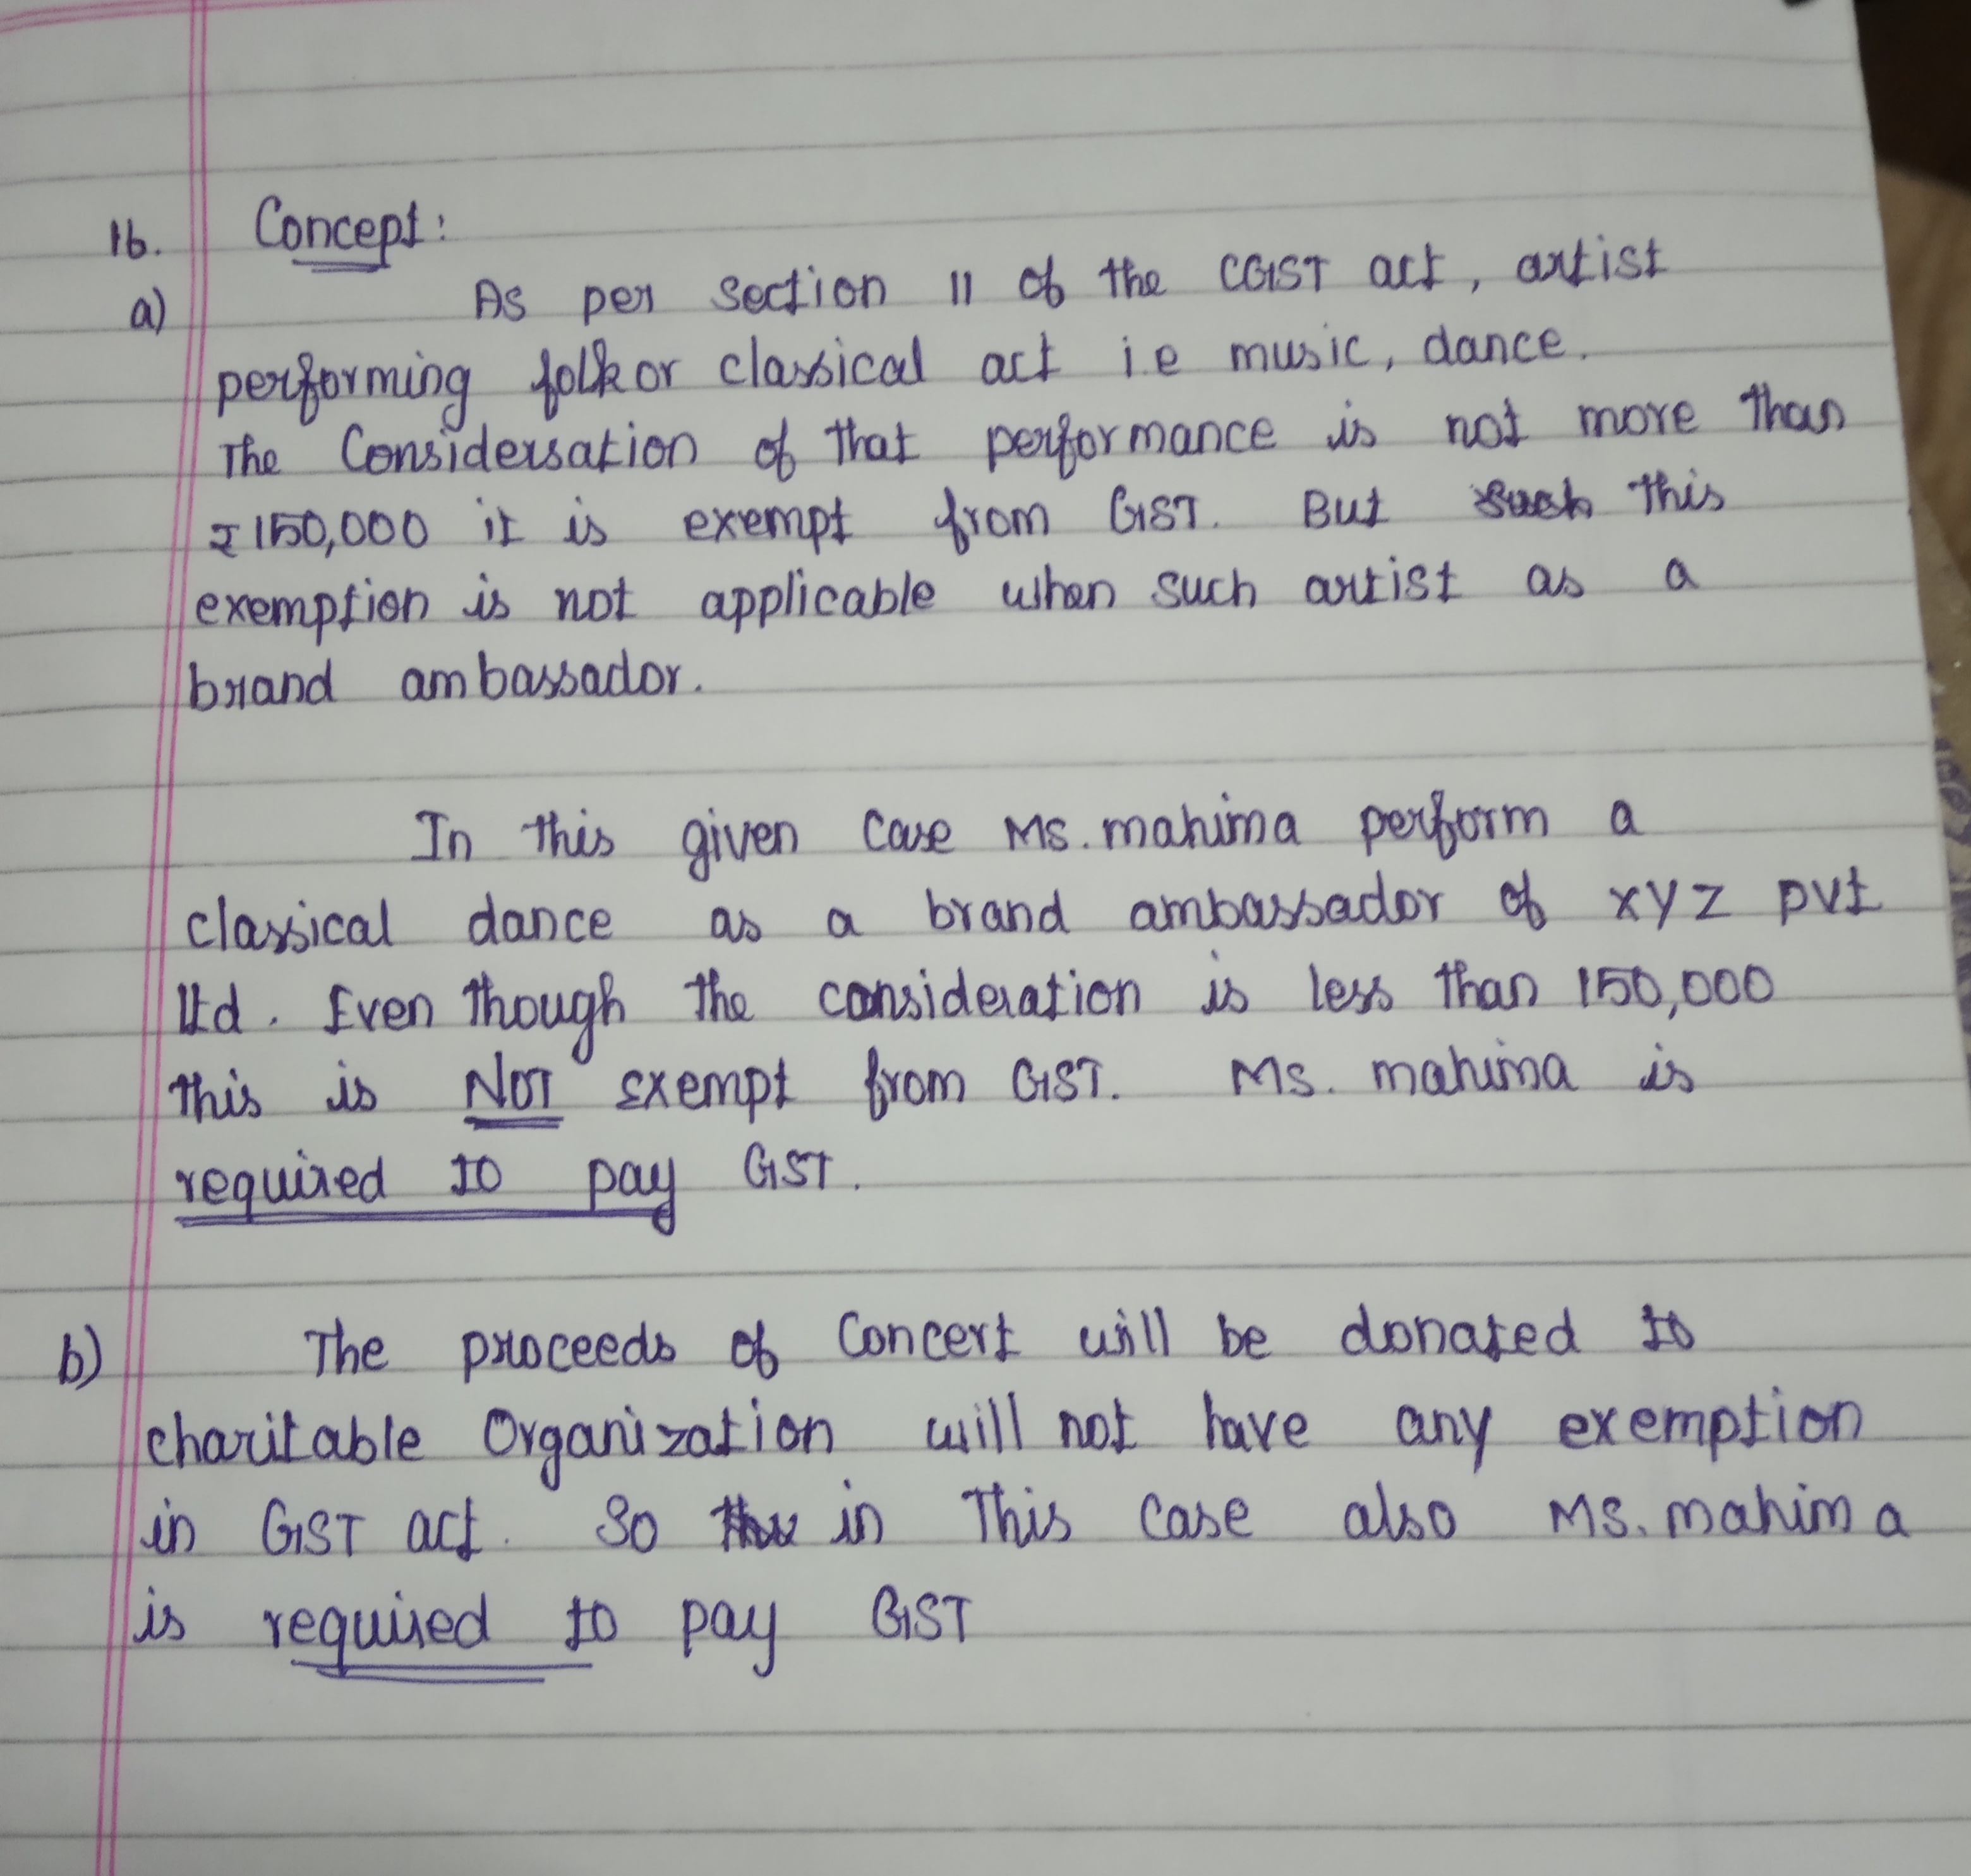 16. Concept:
a) As per section 11 of the CGST act, artist
performing folk or classical act i.e music, dance.
The Consideration of that performance is not more than
₹150,000 it is exempt from GST. But such this
exemption is not applicable when such artist as a
brand ambassador.
In this given case Ms. mahima perform a
classical dance as a brand ambassador of xyz pvt
ltd. Even though the consideration is less than 150,000
this is NOT exempt from GST. Ms. mahima is
required to pay GST.
b) The proceeds of Concert will be donated to
charitable Organization will not have any exemption
in GST act. So in This case also Ms. mahima
is required to pay GST